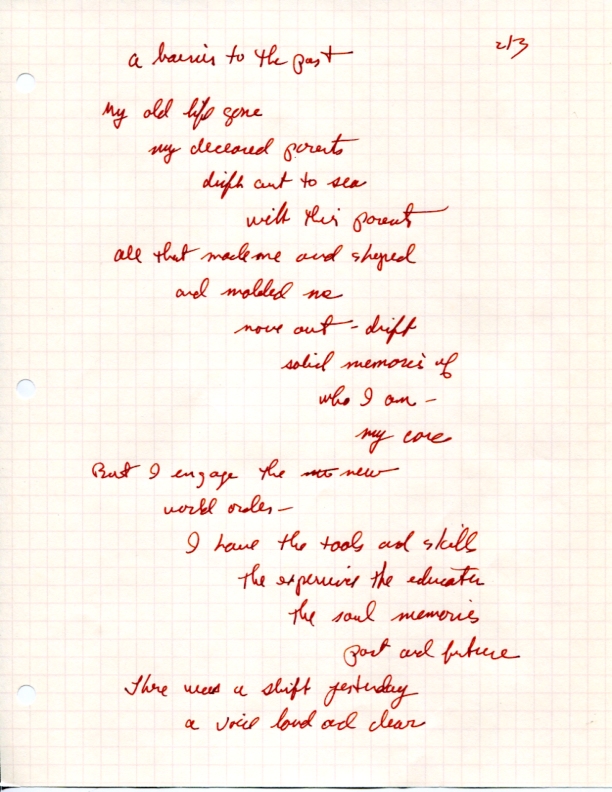 2/3
a barrier to the past
My old life gone
my deceased parents
drift out to sea
with this parents
all that made me and shaped
and molded me
move out - drift
solid memories of
who I am -
my core
But I engage the new
world order -
I have the tools and skills
the experience the education
the soul memories
past and future
There was a shift yesterday
a voice loud and clear